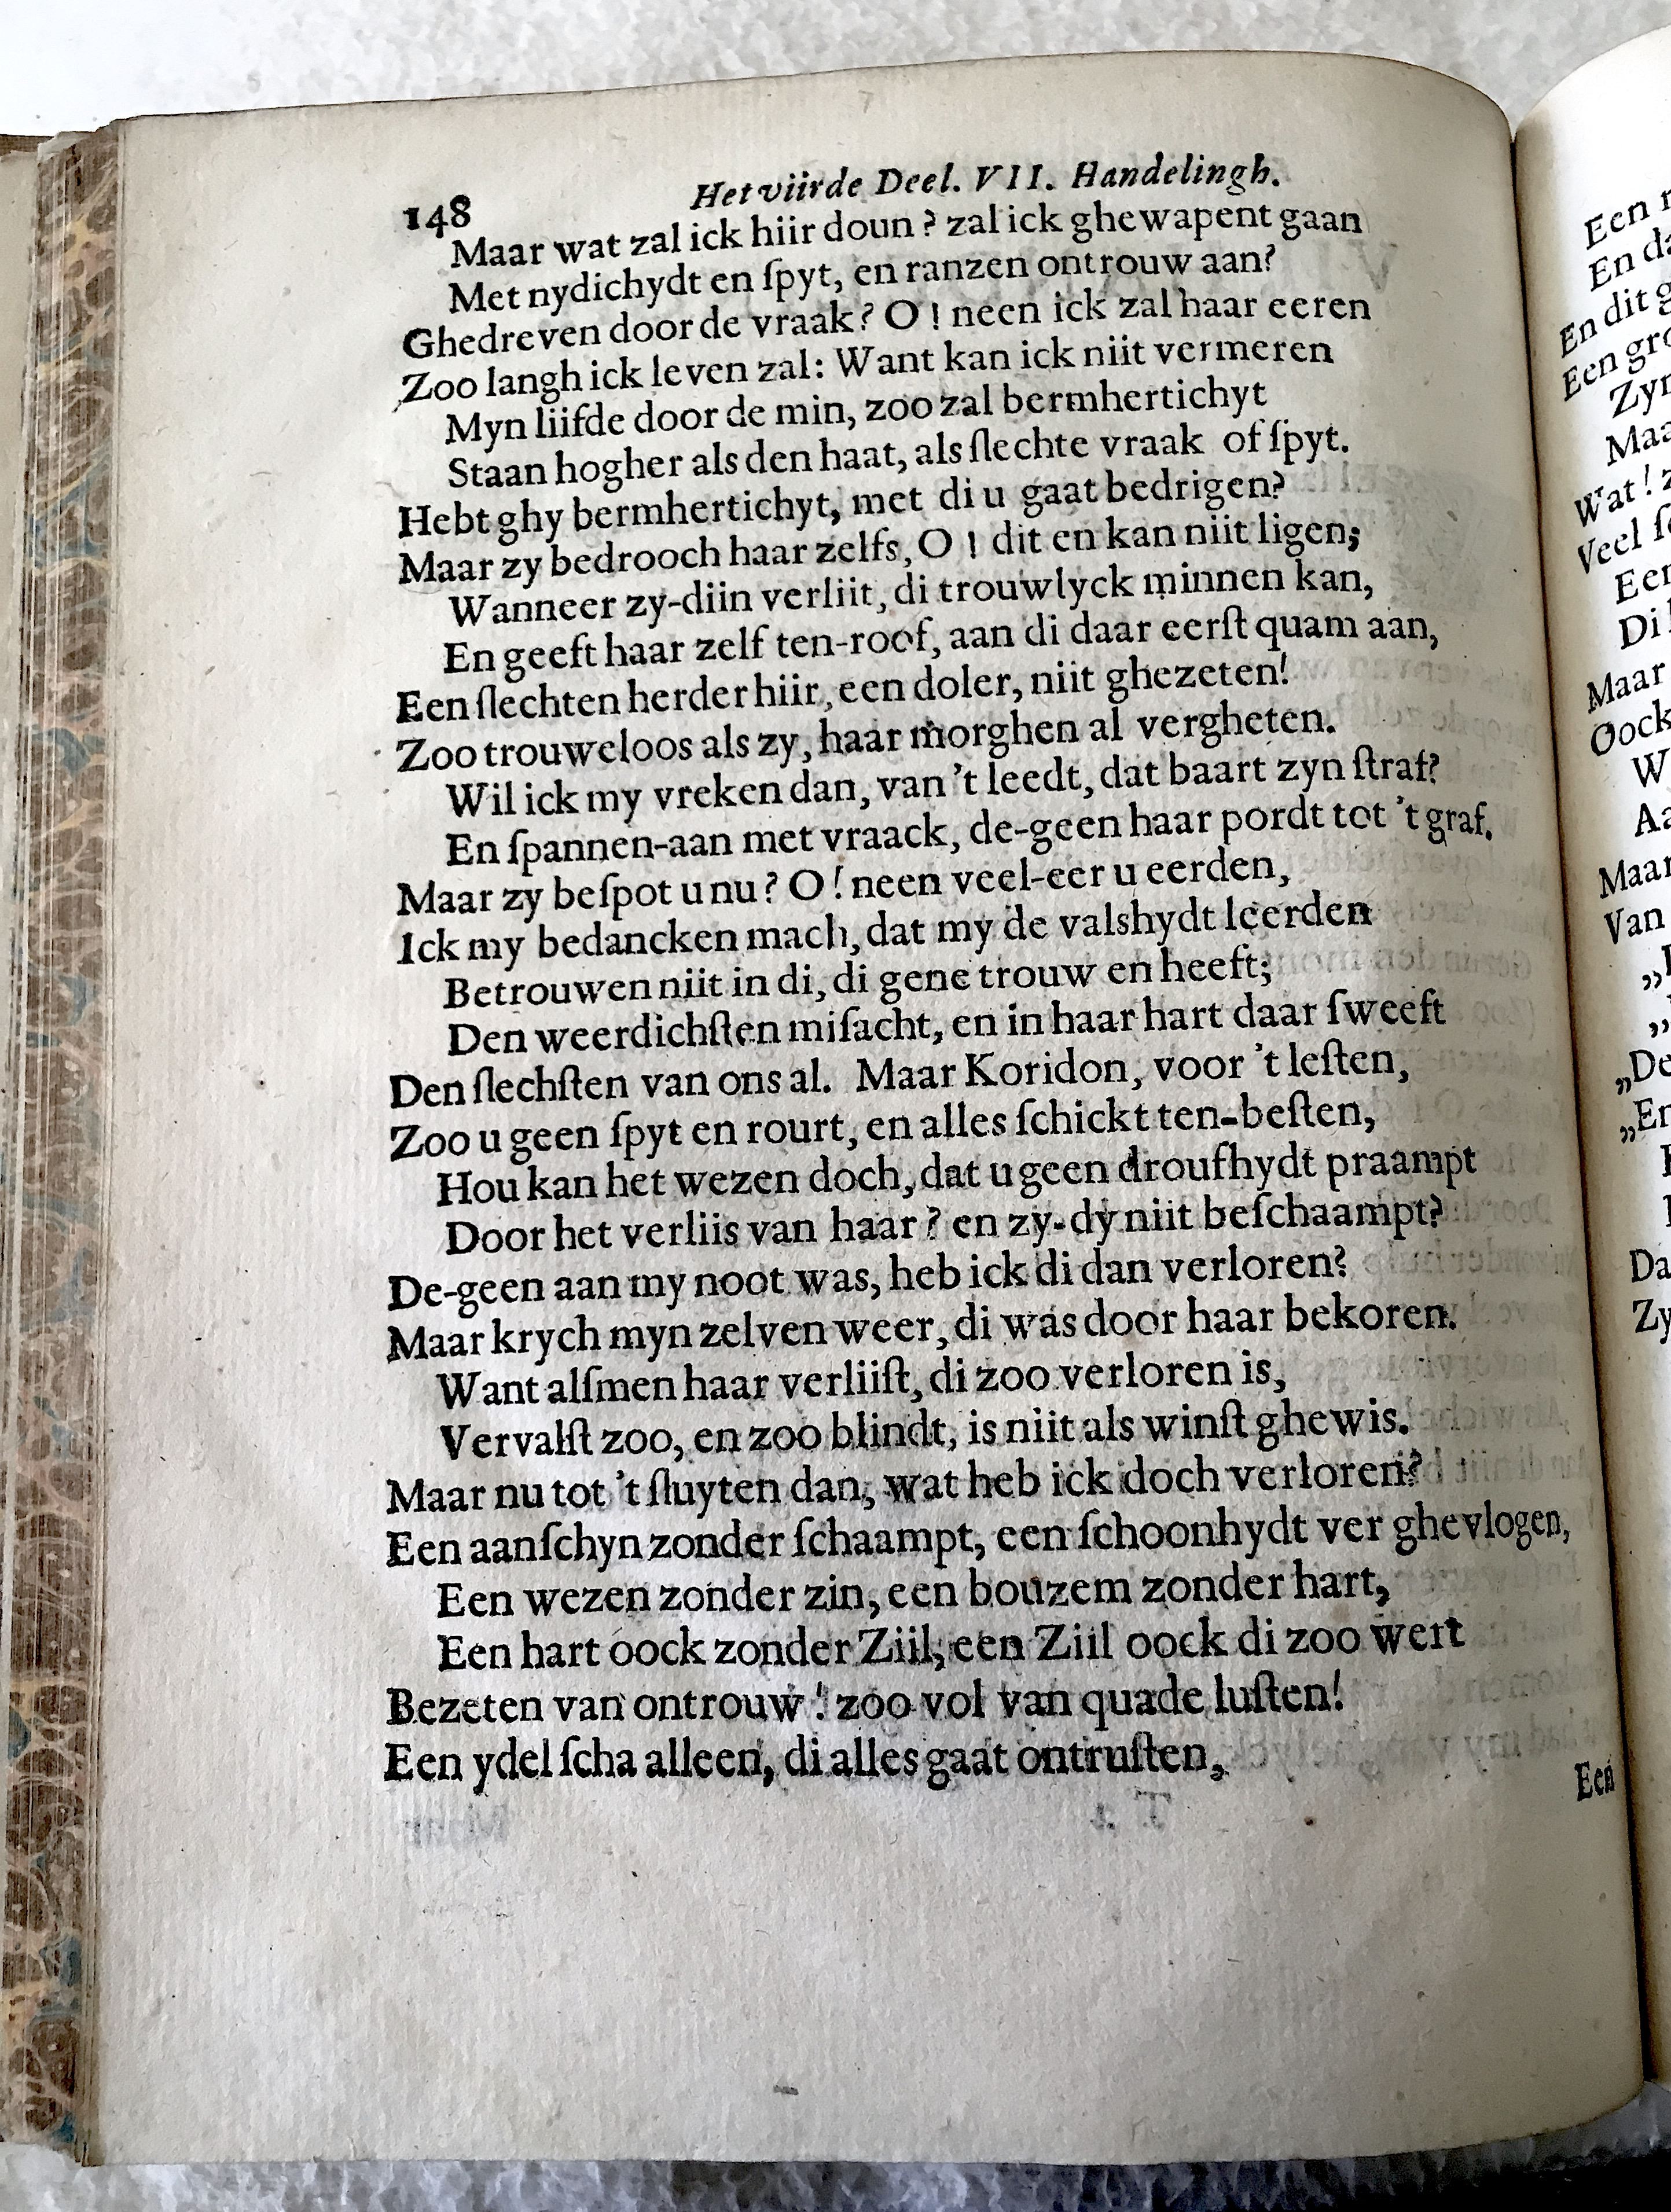 148 Het viirde Deel. VII. Handelingh.
Maar wat zal ick hiir doun? zal ick ghewapent gaan
Met nydichydt en ſpyt, en ranzen ontrouw aan?
Ghedreven door de vraak? O! neen ick zal haar eeren
Zoo langh ick leven zal: Want kan ick niit vermeren
Myn liifde door de min, zoo zal bermhertichyt
Staan hogher als den haat, als ſlechte vraak of ſpyt.
Hebt ghy bermhertichyt, met di u gaat bedrigen?
Maar zy bedrooch haar zelfs, O! dit en kan niit ligen;
Wanneer zy-diin verliit, di trouwlyck minnen kan,
En geeft haar zelf ten-roof, aan di daar eerſt quam aan,
Een ſlechten herder hiir, een doler, niit ghezeten!
Zoo trouweloos als zy, haar morghen al vergheten.
Wil ick my vreken dan, van 't leedt, dat baart zyn ſtraf?
En ſpannen-aan met vraack, de-geen haar pordt tot 't graf.
Maar zy beſpot u nu? O! neen veel-eer u eerden,
Ick my bedancken mach, dat my de valshydt leerden
Betrouwen niit in di, di gene trouw en heeft;
Den weerdichſten miſacht, en in haar hart daar ſweeft
Den ſlechſten van ons al. Maar Koridon, voor 't leſten,
Zoo u geen ſpyt en rourt, en alles ſchickt ten-beſten,
Hou kan het wezen doch, dat u geen droufhydt praampt
Door het verliis van haar? en zy-dy niit beſchaampt?
De-geen aan my noot was, heb ick di dan verloren?
Maar krych myn zelven weer, di was door haar bekoren.
Want alſmen haar verliiſt, di zoo verloren is,
Vervalſt zoo, en zoo blindt, is niit als winſt ghewis.
Maar nu tot 't ſluyten dan, wat heb ick doch verloren?
Een aanſchyn zonder ſchaampt, een ſchoonhydt ver ghevlogen,
Een wezen zonder zin, een bouzem zonder hart,
Een hart oock zonder Ziil, een Ziil oock di zoo wert
Bezeten van ontrouw! zoo vol van quade luſten!
Een ydel ſcha alleen, di alles gaat ontruſten,
Een
Een
En da
En dit g
Een gro
Zyn
Maa
Wat! z
Veel ſc
Een
Di
Maar
Oock
W
Aa
Maar
Van
„De
„En
Da
Zy